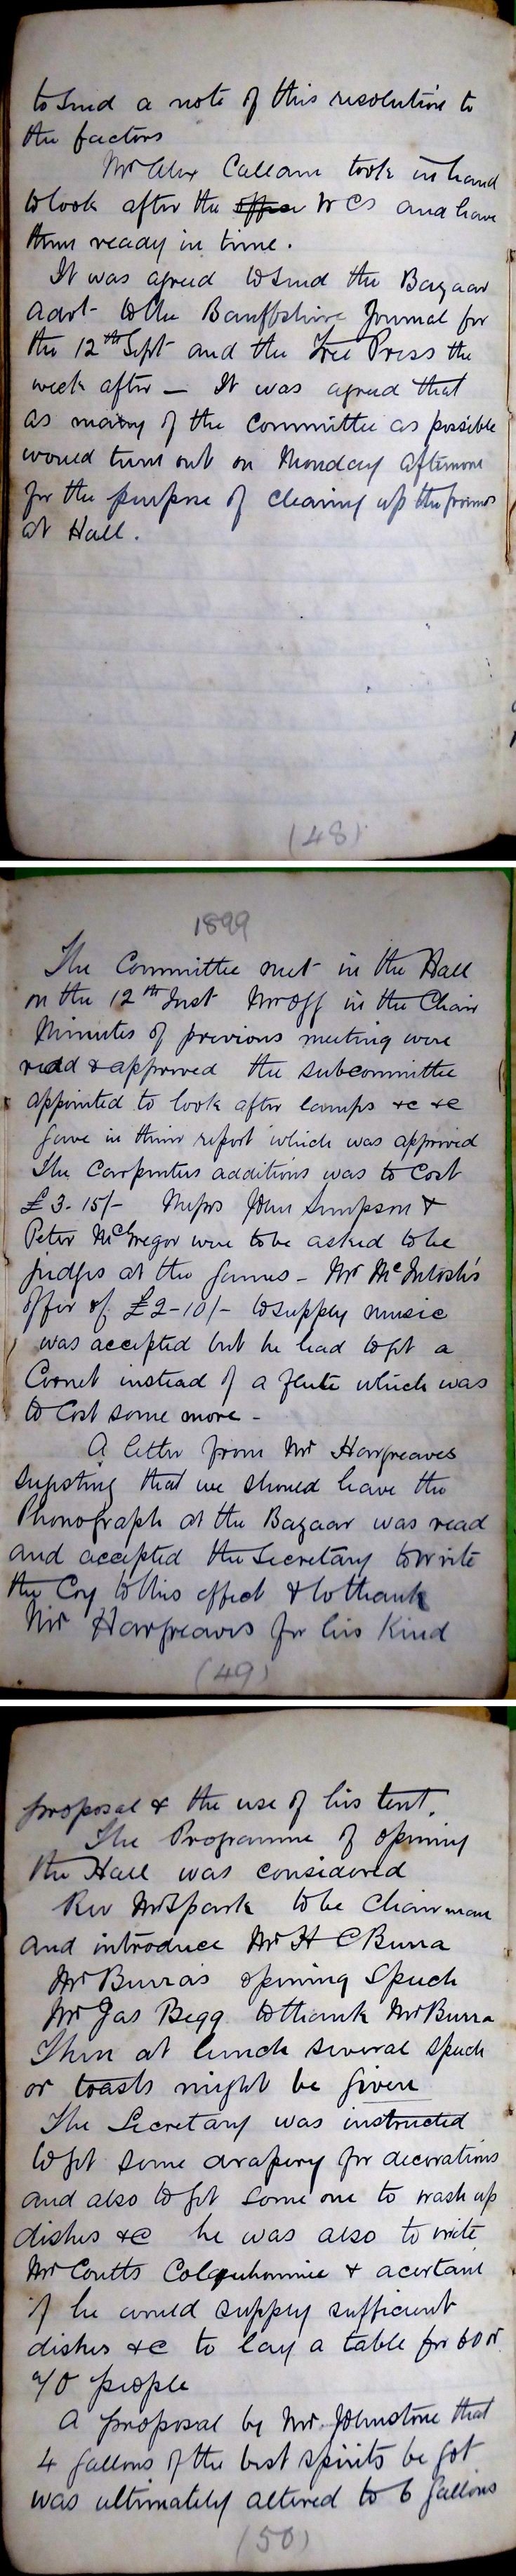 to send a note of this resolution to
the factors
Mr Alex Callam took in hand
to look after the W Cs and have
them ready in time.
It was agreed to send the Bazaar
advt to the Banffshire Journal for
the 12th Sept and the Free Press the
week after — It was agreed that
as many of the Committee as possible
would turn out on Monday afternoon
for the purpose of clearing up the
at Hall.
(48)
1899
The Committee met in the Hall
on the 12th Inst Mr Off in the Chair
Minutes of previous meeting were
read & approved the subcommittee
appointed to look after lamps &c &c
gave in their report which was approved
The Carpenters additions was to cost
£3.15/- Messrs John Simpson &
Peter McGregor were to be asked to be
judges at the games – Mr McIntosh's
offer of £2-10/- to supply music
was accepted but he had to get a
Cornet instead of a flute which was
to cost some more –
A letter from Mr Hargreaves
sugesting that we should have the
Phonograph at the Bazaar was read
and accepted the Secretary to write
the Coy to this effect & to thank
Mr Hargreaves for his kind
(49)
proposal & the use of his tent.
The Programme of opening
the Hall was considered
Rev Mr Spark to be Chairman
and introduce Mr H C Burra
Mr Burras opening Speech
Mr Jas Begg to thank Mr Burra
Then at lunch several speech
or toasts might be given
The Secretary was instructed
to get some drapery for decorations
and also to get some one to wash up
dishes &c he was also to write
Mr Coutts &
if he would supply sufficient
dishes &c to lay a table for 60 or
70 people
A proposal by Mr. Johnstone that
4 gallons of the best spirits be got
was ultimately altered to 6 gallons
(50)